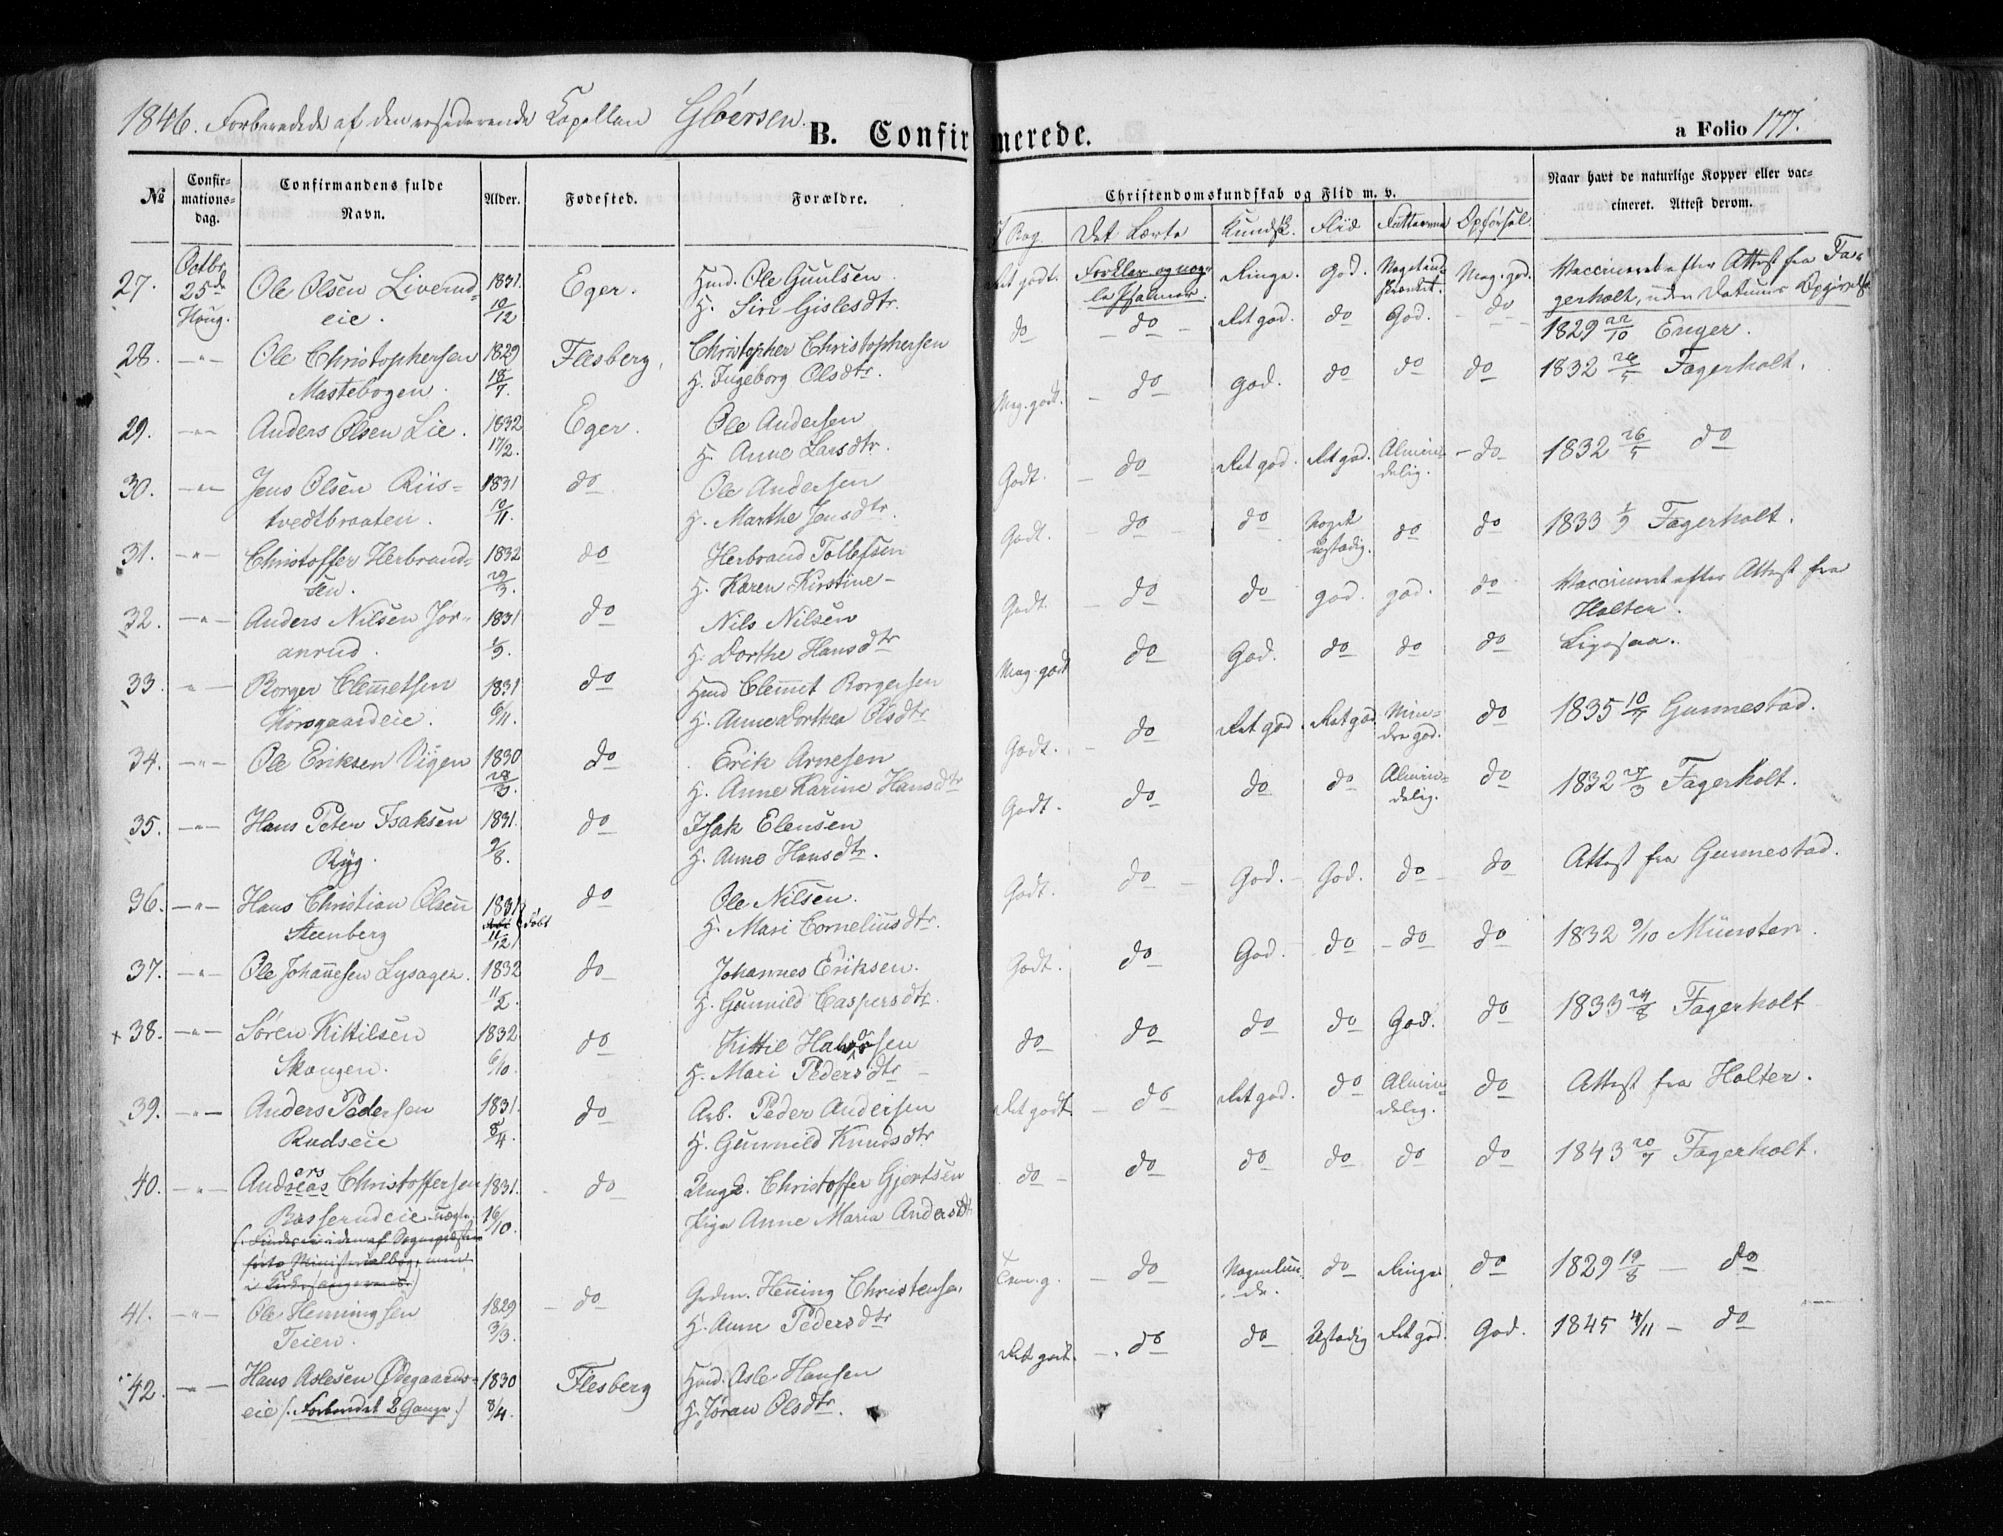 1846. Forberedede af den residerende Capellan Gløersen.
B. Confirmerede.
a Folio 177.
№
Confir-
mations-
dag.
Confirmandens fulde
Navn.
Alder.
Fødested.
Forældre.
Christendomskundskab og Flid m. v.
Naar havt de naturlige Kopper eller vac-
cineret. Attest derom.
I Bog. Det Lærte Kundsk. Flid Fatteevne Opførsel.
27. Octbr. 25de Houg. Ole Olsen Liverud- 1831. Eger. Huusm. Ole Guulsen Ret godt. Forklar. og nog- Ringe. God. Noget ind- Meg. god. Vaccineret efter Attest fra Fa-
eie. 10/12 H. Siri Gislesdtr. le Psalmer. skrænket. gerholt, uden Datums Opgivelse
28. -"- Ole Christophersen 1829 Flesberg. Christopher Christophersen do - do - Ret god. do God. - do 1829 22/10 Enger.
Mastebogen. 18/7. H. Ingeborg Olsdtr.
29. -"- Anders Olsen Lie. 1832 Eger. Ole Andersen Meg. godt. - do god. do do do 1832 26/5 Fagerholt.
17/2. H. Anne Larsdtr.
30. -"- Jens Olsen Riis- 1831 do Ole Andersen Godt. - do Ret god. Ret god. Almin- - do 1832 26/5 do
tvedtbraaten. 10/11. H. Marthe Jensdtr. delig.
31. -"- Christoffer Herbrand- 1832 do Herbrand Tollefsen Godt. - do do Noget do do 1833 1/9 Fagerholt.
sen. 29/3. H. Karen Kirstine - ustadig.
32. -"- Anders Nilsen Jor- 1831 do Nils Nilsen Godt. - do do god. god. do Vaccineret efter Attest fra
anrud. 1/9. H. Dorthe Hansdtr Holter.
33. -"- Borger Clemetsen 1831 do Huusmd Clemet Borgersen Meg. godt do God. do do do Ligesaa.
Horsgaardeie. 6/11. H. Anne Dorthea Olsdtr
34. -"- Ole Eriksen Vigen 1830 do Erik Arnesen Godt. - do Ret god. Ret god. Min- do 1835 10/7 Gunnestad.
28/3. H. Anne Karine Hansdtr dre god.
35. -"- Hans Peter Isaksen 1831. do Isak Elensen Godt. do do do Almin- do 1832 28/3 Fagerholt.
Ryg. 9/8. H. Anne Hansdtr. delig.
36. -"- Hans Christian Olsen 1831 do Ole Nilsen. Godt. do - God. - God. do - do Attest fra Gunnestad.
Steenberg 11/12 Døbt H. Mari Corneliusdtr.
37. -"- Ole Johannesen Lysager. 1832 do Johannes Eriksen. Godt. do God. do - do do 1832 9/10 Münster.
11/2. H. Gunnild Caspersdtr.
+ 38. -"- Søren Kittilsen 1832. do Kittil Halvorsen do do do do God. do 1833 24/8 Fagerholt
Skougen. 6/10. H. Mari Pedersdtr -
39. -"- Anders Pedersen 1831. do Arb. Peder Andersen Ret godt - do Ret god. do Almin- do Attest fra Holter.
Rudseie 8/4. H. Gunnild Knudsdtr delig.
40. -"- Andreas ers Christoffersen 1831. - do Ungk. Christoffer Gjertsen do - do do do do do 1843 20/7 Fagerholt.
Basserudeie uægte. 16/10. Pige Anne Maria Andersdtr
(. Findes ei i den af Sognepræsten
førte Ministerialbog, men
i Kirkesangerens .)
41. -"- Ole Henningsen 1829 - do Gedm. Hening Christensen Tem. g. - do Nogenlun- do Ringe. do 1829 19/8 - do
Teien. 3/3. H. Anne Pedersdtr de.
42. -"- Hans Aslesen Ødegaards- 1830 Flesberg Huusmd. Asle Hansen Ret godt. - do do Ustadig Ret god. God. 1845 4/11 - do
eie (. Forberedet 2 Gange .) 8/4. H. Jøran Olsdtr.